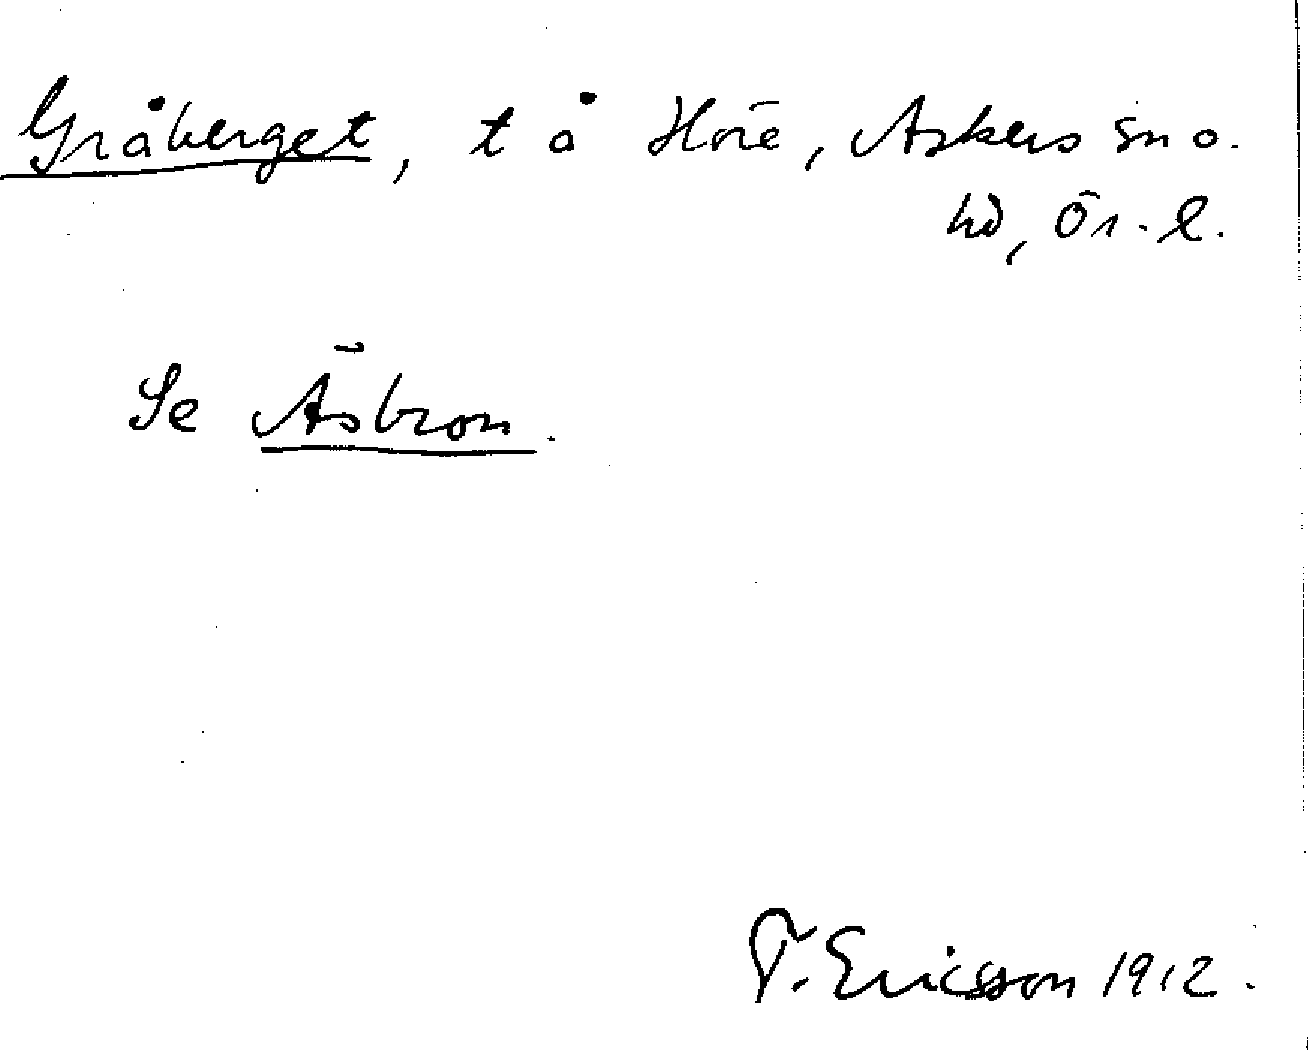 Gråberget, t å Höre, Askers sn o.
hd, Ör. l.
Se Åsbron.
T. Ericsson 1912.